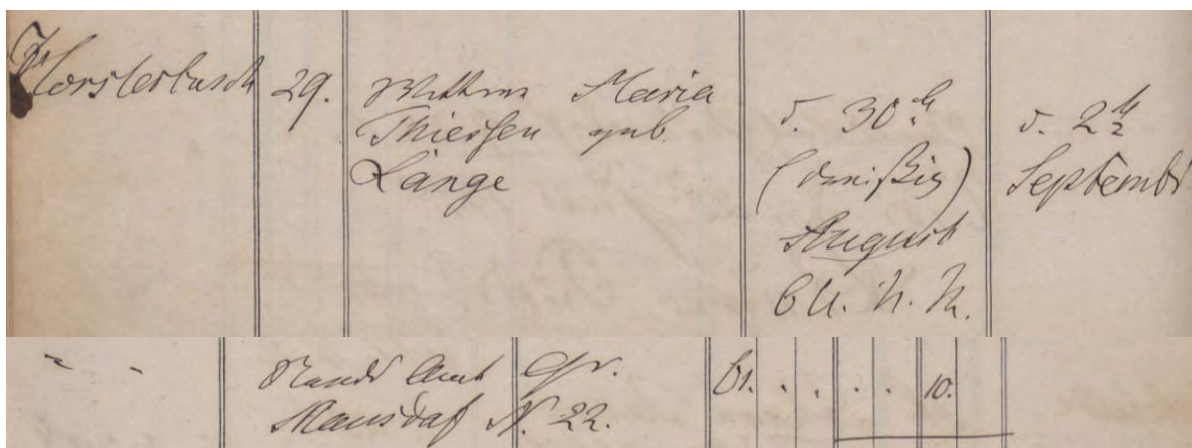 Horsterbusch
29.
Wittwe Maria
Thiessen geb.
Lange
d. 30t
(dreißig)
August
6 U. N. M.
d. 2t
September
Stands Amt Gr.
Mausdorf N. 22.
61. . . . . 10.